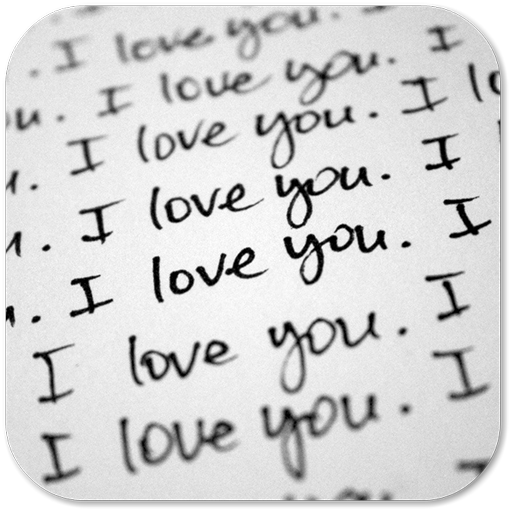 . I love you. I
ou. I love you. I
u. I love you. I lo
u. I love you. I
u. I love you. I
I love you. I
I love you. I
you. I